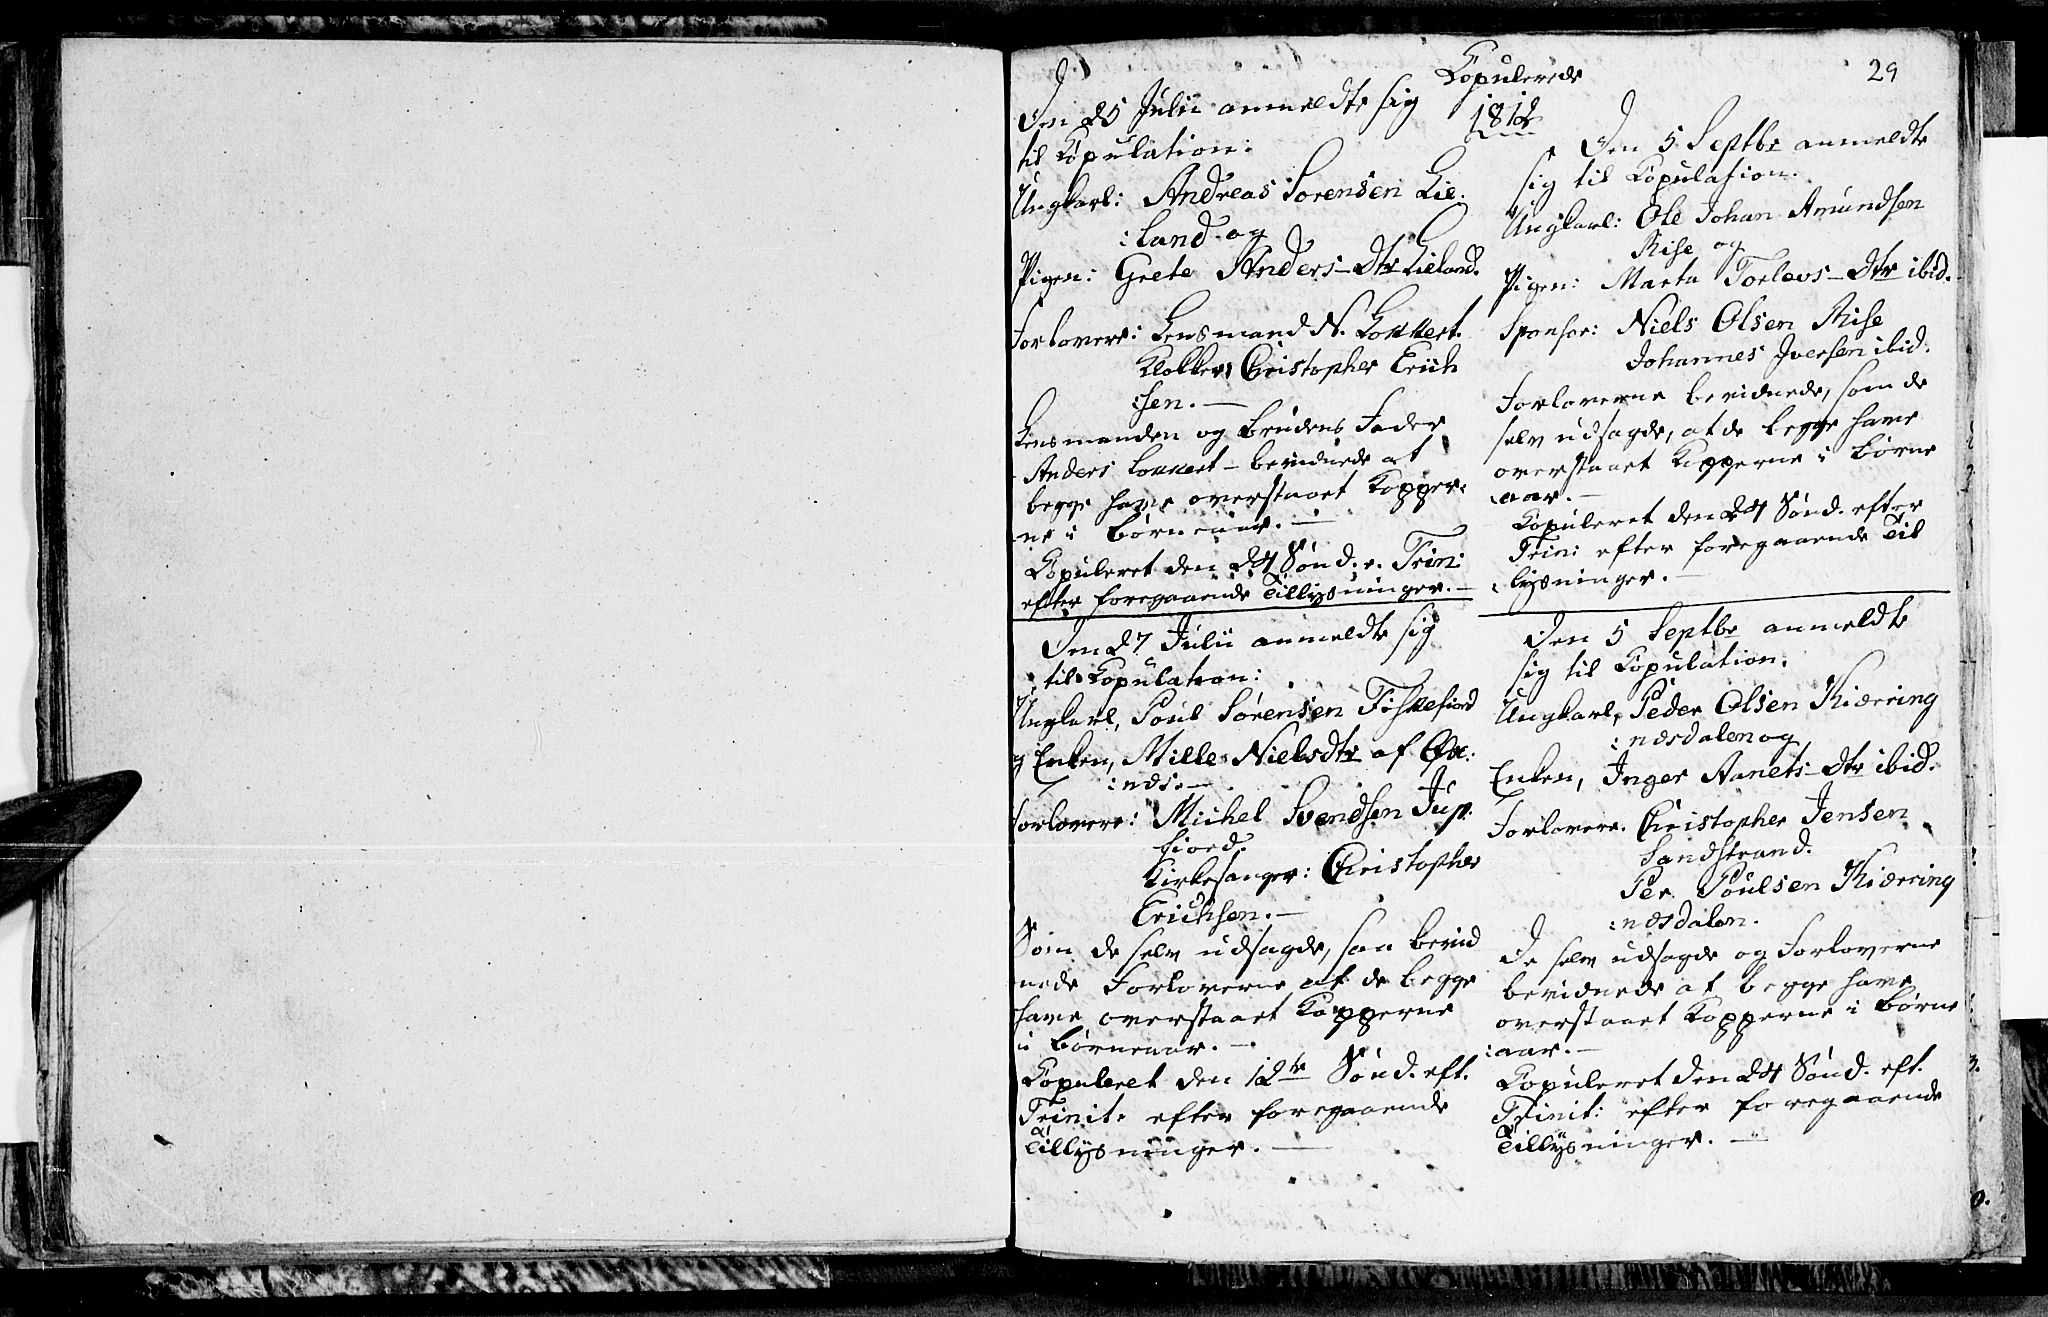 Copulerede
29
1812
Den 25 Julii anmeldte sig
til Copulation:
Ungkarl: Andreas Sorensen Lie:
:land og
Pigen: Grete Anders-Dtr Lieland.
Forlovere: Lensmand N. Lockert.
Klokker Christopher Erich
:sen. —
Lensmanden og Brudens Fader
Anders Lockert - bevidnede at
begge have overstaaet Kopper:
ne i Børneaar. —
Copuleret den 24 Sønd. e. Trin:
efter foregaaende Tillysninger. —
Den 27 Julii anmeldte sig
til Copulation:
Ungkarl, Poul Sørensen Fiskefiord
og Enken, Mille Nielsdtr af Øx:
:næs. —
Forlovere: Michel Svendsen Jup:
fiord.
Kirkesanger: Christopher
Erichsen. —
Som de selv udsagde, saa bevid
nede Forloverne at de begge
have overstaaet Kopperne
i Børneaar. —
Copuleret den 12te Sønd. eft.
Trinit: efter foregaaende
Tillysninger. —
Den 5 Septbr anmeldte
sig til Copulation.
Ungkarl: Ole Johan Amundsen
Rise og
Pigen: Marta Torlevs-Dtr ibid.
Sponsor: Niels Olsen Rise
Johannes Iversen ibid:
Forloverne bevidnede, som de
selv udsagde, at de begge have
overstaaet Kopperne i Børne
:aar. —
Copuleret den 24 Sønd. efter
Trin: efter foregaaende Til
:lysninger. —
Den 5 Septbr anmeldte
sig til Copulation.
Ungkarl, Peder Olsen Kiærring
:næsdalen og
Enken, Inger Aanets-Dtr ibid.
Forlovere. Christopher Jensen
Sandstrand.
Per Poulsen Kiærring
:næsdalen.
De selv udsagde og Forloverne
bevidnede at begge have
overstaaet Kopperne i Børne
:aar. —
Copuleret den 24 Sønd. eft.
Trinit: efter foregaaende
Tillysninger. —